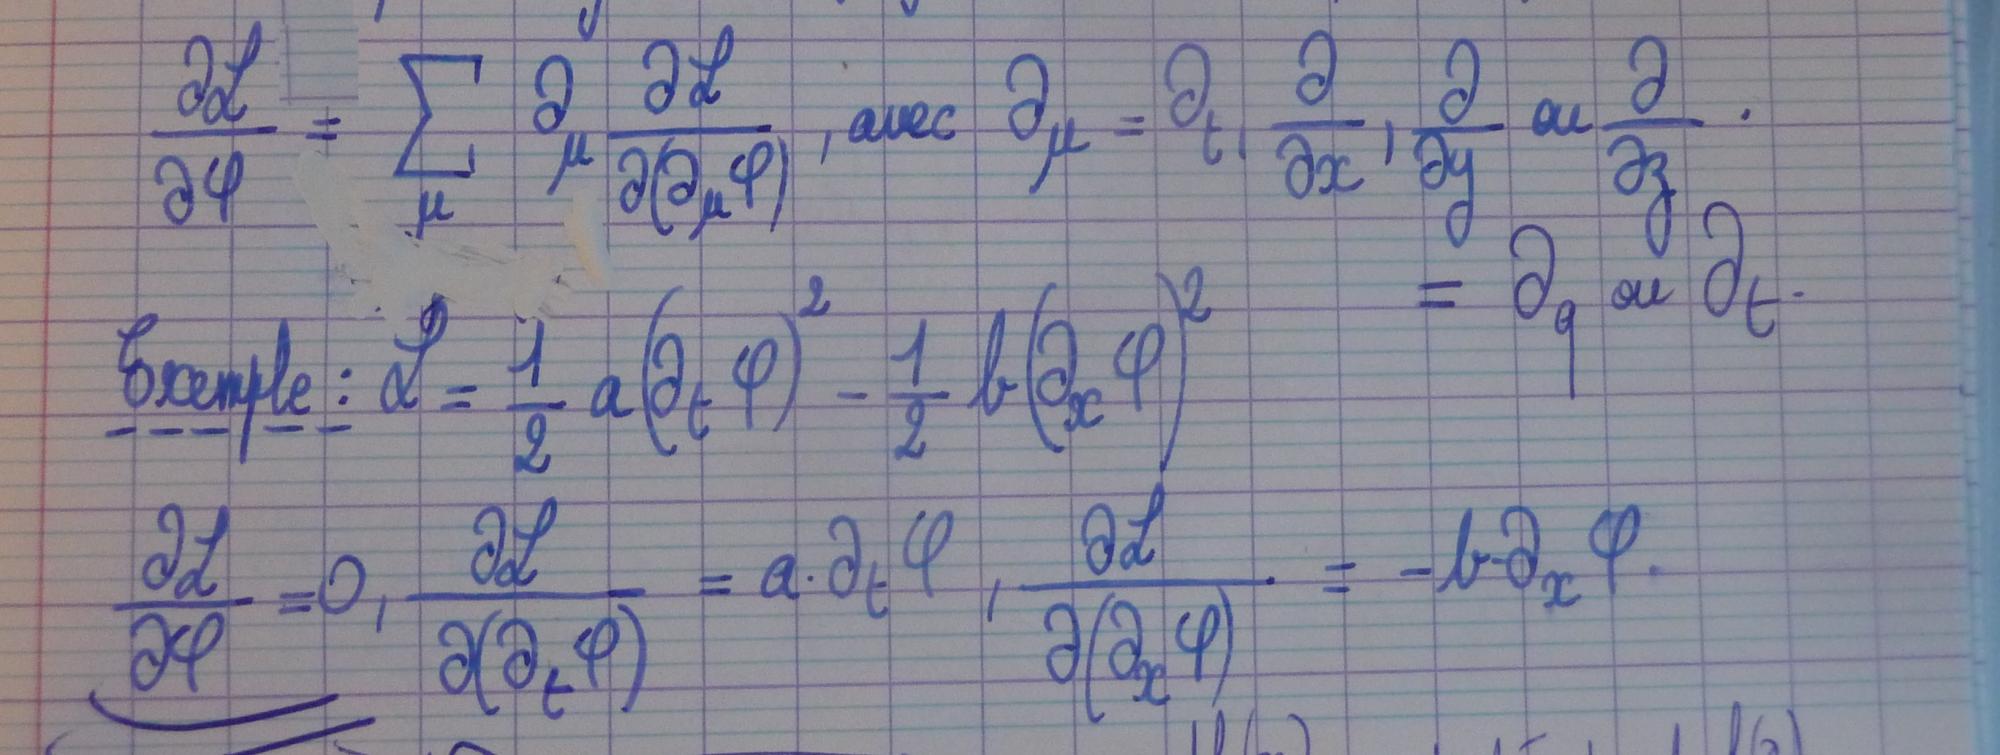 ∂ℒ/∂φ = Σ_μ ∂_μ ∂ℒ/∂(∂_μ φ), avec ∂_μ = ∂_t, ∂/∂x, ∂/∂y ou ∂/∂z.
= ∂_q ou ∂_t.
Exemple : ℒ = 1/2 a(∂_t φ)² - 1/2 b(∂_x φ)²
∂ℒ/∂φ = 0, ∂ℒ/∂(∂_t φ) = a·∂_t φ, ∂ℒ/∂(∂_x φ) = -b·∂_x φ.